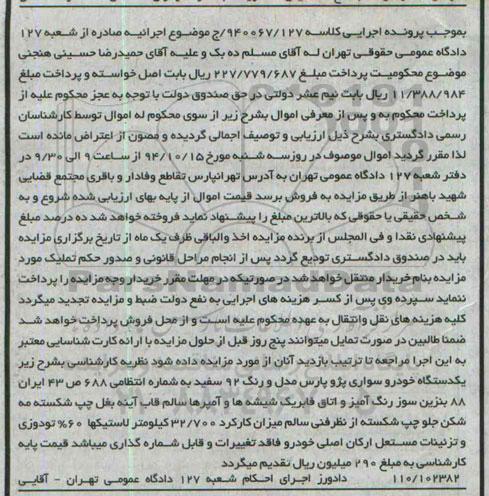 بموجب پرونده اجرایی کلاسه ۹۴۰۰۶۷/۱۲۷/ج موضوع اجرائیه صادره از شعبه ۱۲۷
دادگاه عمومی حقوقی تهران له آقای مسلم ده بک و علیه آقای حمیدرضا حسینی هنجنی
موضوع محکومیت پرداخت مبلغ ۲۲۷/۷۷۹/۶۸۷ ریال بابت اصل خواسته و پرداخت مبلغ
۱۱/۳۸۸/۹۸۴ ریال بابت نیم عشر دولتی در حق صندوق دولت با توجه به عجز محکوم علیه از
پرداخت محکوم به و پس از معرفی اموال بشرح زیر از سوی محکوم له اموال توسط کارشناسان
رسمی دادگستری بشرح ذیل ارزیابی و توصیف اجمالی گردیده و مصون از اعتراض مانده است
لذا مقرر گردید اموال موصوف در روزسه شنبه مورخ ۹۴/۱۰/۱۵ از ساعت ۹ الی ۹/۳۰ در
دفتر شعبه ۱۲۷ دادگاه عمومی تهران به آدرس تهرانپارس تقاطع وفادار و باقری مجتمع قضایی
شهید باهنر از طریق مزایده به فروش برسد قیمت اموال از پایه بهای ارزیابی شده شروع و به
شخص حقیقی یا حقوقی که بالاترین مبلغ را پیشنهاد نماید فروخته خواهد شد ده درصد مبلغ
پیشنهادی نقدا و فی المجلس از برنده مزایده اخذ والباقی ظرف یک ماه از تاریخ برگزاری مزایده
باید در صندوق دادگستری تودیع گردد پس از انجام مراحل قانونی و صدور حکم تملیک مورد
مزایده بنام خریدار منتقل خواهد شد در صورتیکه در مهلت مقرر خریدار وجه مزایده را پرداخت
ننماید سپرده وی پس از کسر هزینه های اجرایی به نفع دولت ضبط و مزایده تجدید میگردد
کلیه هزینه های نقل وانتقال به عهده محکوم علیه است و از محل فروش پرداخت خواهد شد
ضمنا طالبین در صورت تمایل میتوانند پنج روز قبل از حلول مزایده با ارائه کارت شناسایی معتبر
به این اجرا مراجعه تا ترتیب بازدید آنان از مورد مزایده داده شود نظریه کارشناسی بشرح زیر
یکدستگاه خودرو سواری پژو پارس مدل و رنگ ۹۲ سفید به شماره انتظامی ۶۸۸ ص ۴۳ ایران
۸۸ بنزین سوز رنگ آمیز و اتاق فابریک شیشه ها و آمپرها سالم قاب آینه بغل چپ شکسته مه
شکن جلو چپ شکسته از نظر فنی سالم میزان کارکرد ۳۲/۷۰۰ کیلومتر لاستیکها ۶۰% تودوزی
و تزئینات مستعل ارکان اصلی خودرو فاقد تغییرات و قابل شماره گذاری میباشد قیمت پایه
کارشناسی به مبلغ ۲۹۰ میلیون ریال تقدیم میگردد
۱۱۰/۱۰۲۳۸۲ دادورز اجرای احکام شعبه ۱۲۷ دادگاه عمومی تهران - آقایی
ParsNamadData